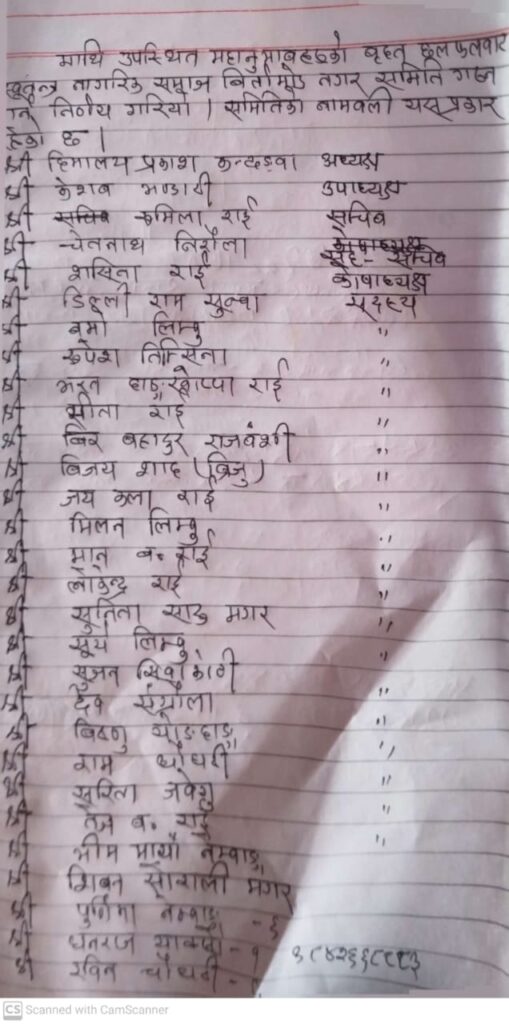 माथि उपस्थित महानुभावहरुको वृहत छलफलबाट
स्वतन्त्र नागरिक समाज बिर्तामोड नगर समिति गठन
गर्ने निर्णय गरियो । समितिका नामवली यस प्रकार
रहेका छ ।
श्री हिमालय प्रकाश कन्दङवा अध्यक्ष
श्री केशव भण्डारी उपाध्यक्ष
श्री सचिव रुमिला राई सचिव
श्री चेतनाथ निरौला सह-सचिव
श्री शसिना राई कोषाध्यक्ष
श्री डिल्ली राम सुब्बा सदस्य
श्री लिम्बु "
श्री रुपेश तिम्सिना "
श्री भरत राई "
श्री सीता राई "
श्री बिर बहादुर राजवंशी "
श्री बिजय शाह (बिजु) "
श्री जय कला राई "
श्री मिलन लिम्बु "
श्री मान ब. राई "
श्री राई "
श्री सुनिता सारु मगर "
श्री सूर्य लिम्बु "
श्री सुजन सिवाकोटी "
श्री देव संग्रौला "
श्री बिष्णु "
श्री राम चौधरी "
श्री सरिता "
श्री तेज ब. राई "
श्री भीम माया नेम्बाङ
श्री मगर
श्री पुर्णिमा नेम्बाङ -
श्री धनराज -
श्री रविन चौधरी -
CS Scanned with CamScanner